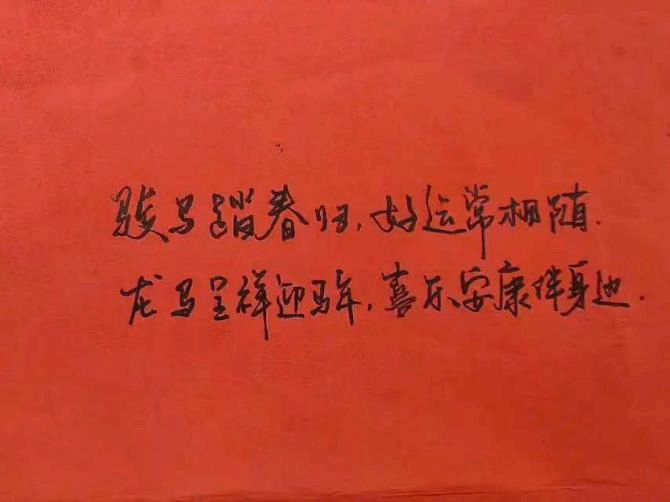 骏马踏春归,好运常相随.
龙马呈祥迎马年,喜乐安康伴身边.